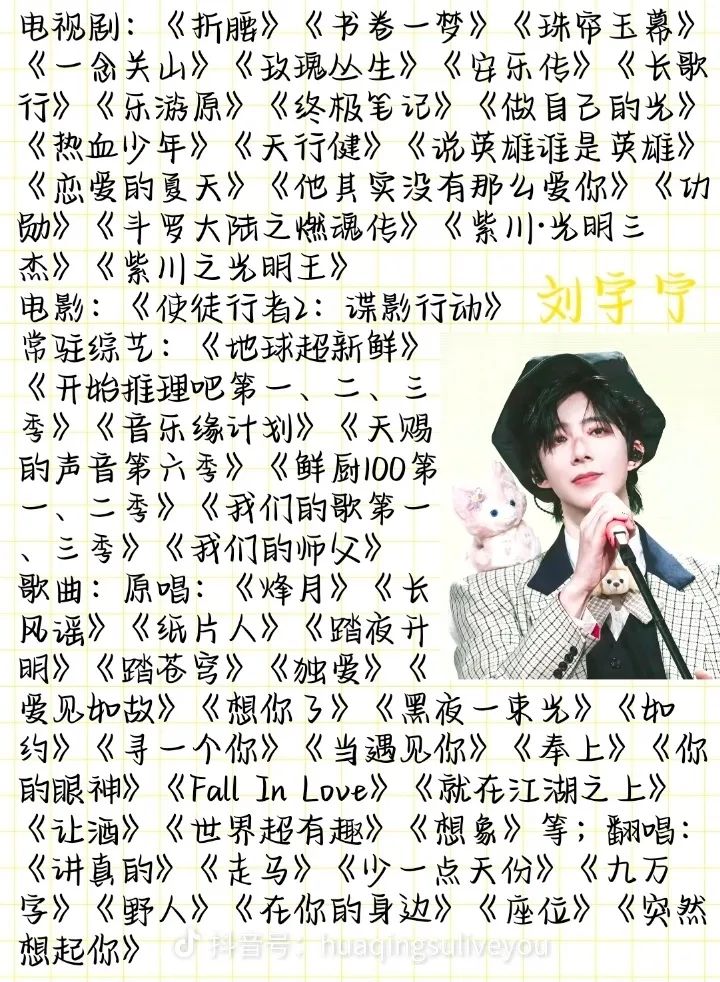 电视剧：《折腰》《书卷一梦》《珠帘玉幕》
《一念关山》《玫瑰丛生》《安乐传》《长歌
行》《乐游原》《终极笔记》《做自己的光》
《热血少年》《天行健》《说英雄谁是英雄》
《恋爱的夏天》《他其实没有那么爱你》《功
勋》《斗罗大陆之燃魂传》《紫川·光明三
杰》《紫川之光明王》
电影：《使徒行者2：谍影行动》
刘宇宁
常驻综艺：《地球超新鲜》
《开始推理吧第一、二、三
季》《音乐缘计划》《天赐
的声音第六季》《鲜厨100第
一、二季》《我们的歌第一
、三季》《我们的师父》
歌曲：原唱：《烽月》《长
风谣》《纸片人》《踏夜开
明》《踏苍穹》《独爱》《
爱见如故》《想你了》《黑夜一束光》《如
约》《寻一个你》《当遇见你》《奉上》《你
的眼神》《Fall In Love》《就在江湖之上》
《让酒》《世界超有趣》《想象》等；翻唱：
《讲真的》《走马》《少一点天份》《九万
字》《野人》《在你的身边》《座位》《突然
想起你》
抖音号：huaqingsuliveyou